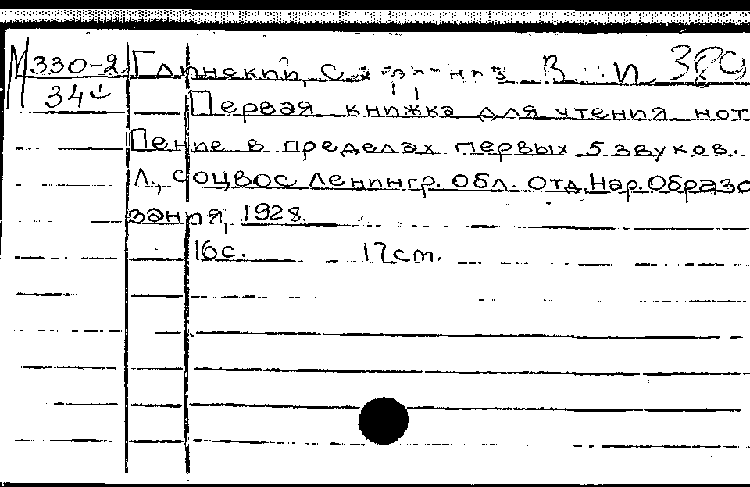 М 330-2 Глинский, С. В. 389
34
Первая книжка для чтения нот
Пение в пределах первых 5 звуков.
Л., Соцвос Ленингр. Обл. Отд. Нар. Образо
вания, 1928.
16с. 17cm.